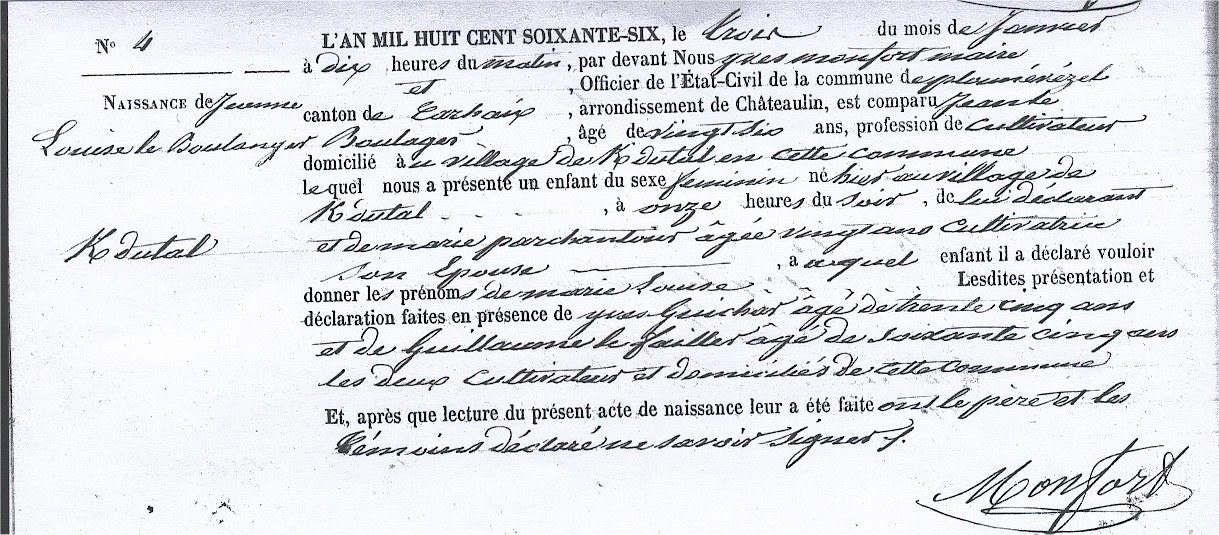 N° 4
NAISSANCE de Jeanne
Louise le Boulanger
K dutal
L'AN MIL HUIT CENT SOIXANTE-SIX, le trois du mois de Janvier
à dix heures du matin, par devant Nous yves monfort maire
et , Officier de l'État-Civil de la commune de plounévézel
canton de Carhaix , arrondissement de Châteaulin, est comparu
Boulager , âgé de vingt six ans, profession de Cultivateur
domicilié à u village de K dutal en cette commune
lequel nous a présenté un enfant du sexe feminin né hier au village de
K dutal , à onze heures du soir , de lui déclarant
et de marie parchantour âgée vingt ans Cultivatrice
son Epouse , a uquel enfant il a déclaré vouloir
donner les prénoms de marie Louise Lesdites présentation et
déclaration faites en présence de yves Guichar âgé de trente cinq ans
et de Guillaume le failler âgé de soixante cinq ans
les deux Cultivateur et domiciliés de cette commune
Et, après que lecture du présent acte de naissance leur a été faite ont le père et les
témoins déclaré ne savoir signer .
Monfort